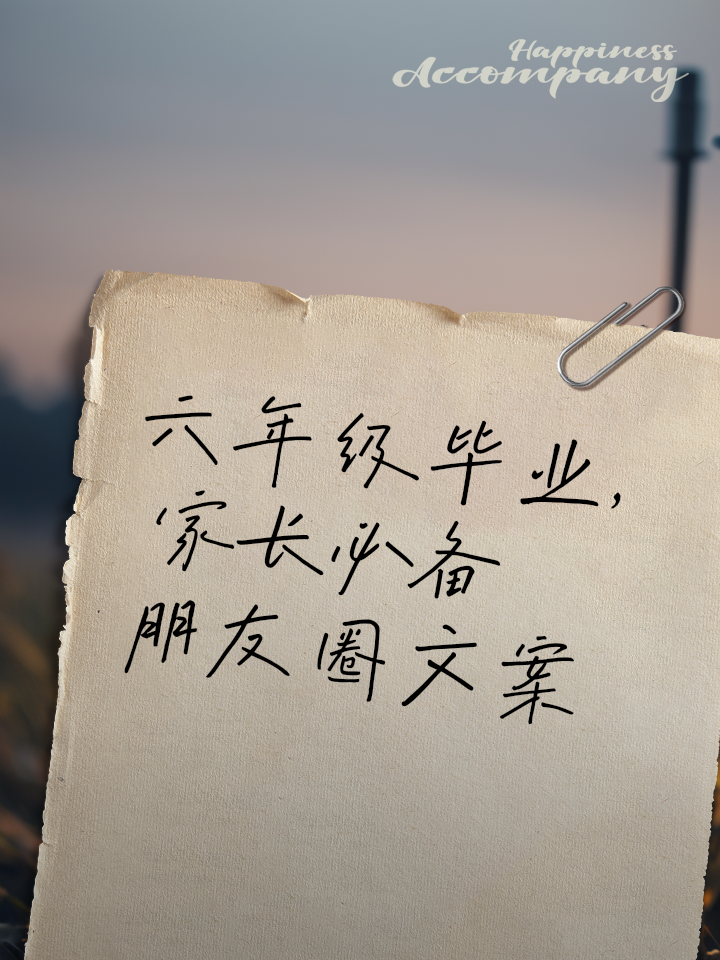 Happiness
Accompany
六年级毕业,
家长必备
朋友圈文案